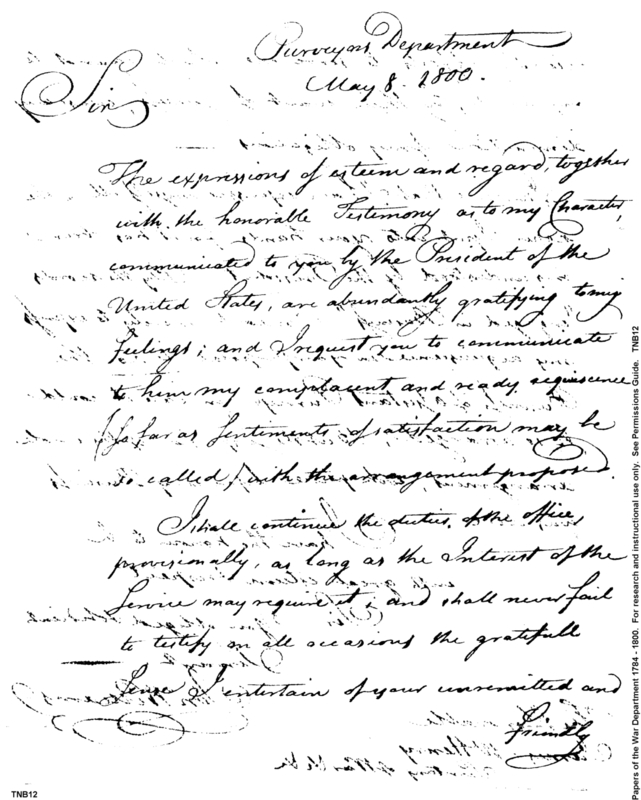 Purveyors Department
May 8. 1800.
Sir
The expressions of esteem and regard, together
with the honorable Testimony as to my Character,
communicated to you by the President of the
United States, are abundantly gratifying to my
feelings; and I request you to communicate
to him my complacent and ready acquiescence
(so far as Sentiments of satisfaction may be
so called) with the arrangement proposed.
I shall continue the duties of the office,
provisionally, as long as the Interest of the
Service may require it; and shall never fail
to testify on all occasions the gratefull
Sense I entertain of your unremitted and
friendly
TNB12
Papers of the War Department 1784 - 1800. For research and instructional use only. See Permissions Guide. TNB12